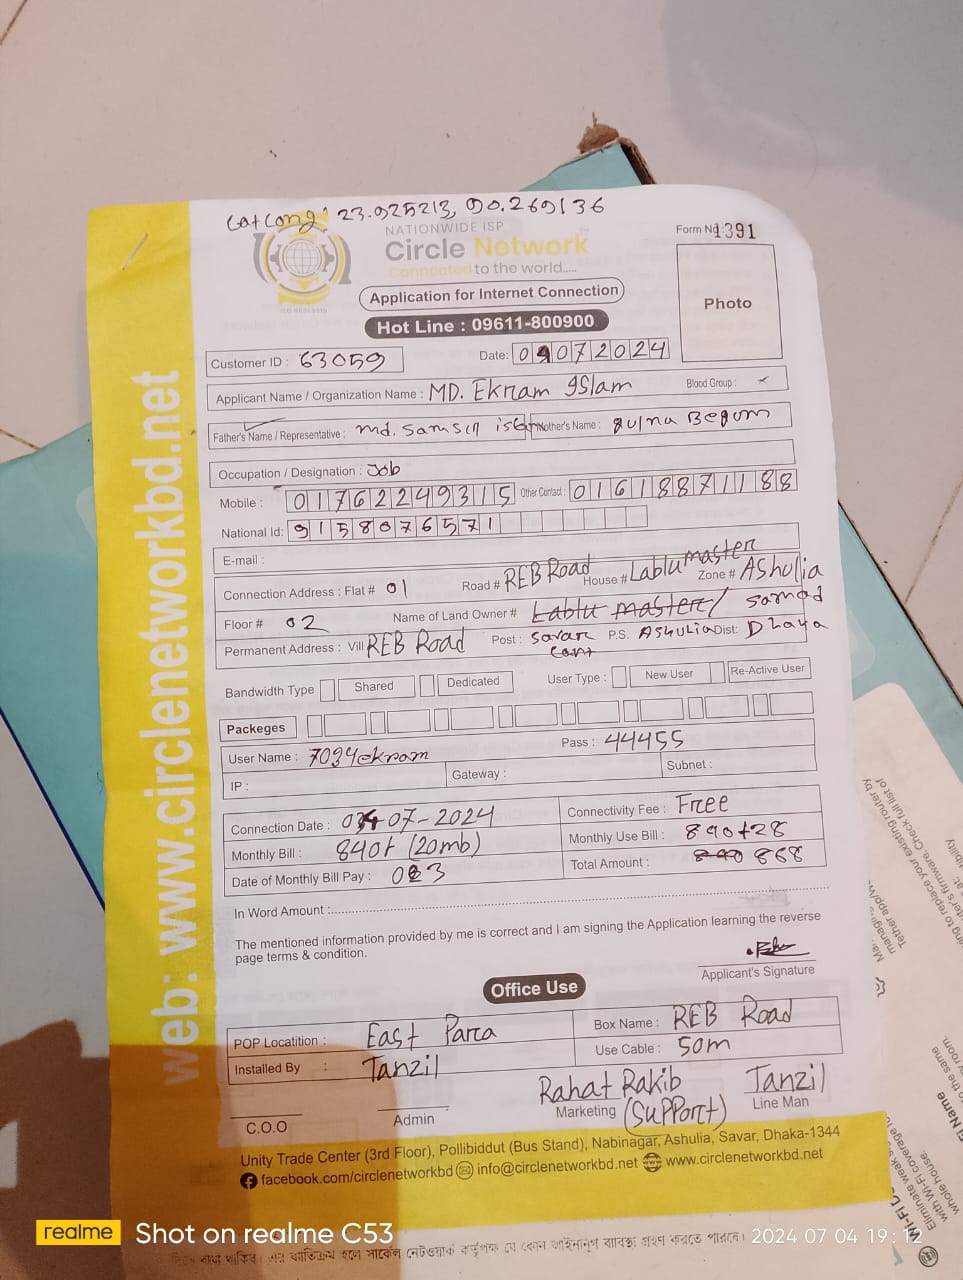 Lat Long: 23.925213, 90.269136
NATIONWIDE ISP
Circle Network
Connected to the world.....
Form No 1391
Application for Internet Connection
Photo
Hot Line : 09611-800900
Customer ID : 63059 Date: 04072024
Applicant Name / Organization Name : MD. Ekram Islam Blood Group : ×
Father's Name / Representative : md. Samsul islam Mother's Name : gulna Begum
Occupation / Designation : Job
Mobile : 01762249315 Other Contact : 01618871188
National Id: 9158076571
E-mail :
Connection Address : Flat # 01 Road # REB Road House # Lablu master Zone # Ashulia
Floor # 02 Name of Land Owner # Lablu master/ Samad
Permanent Address : Vill REB Road Post : Savar Cant P.S. AShULIA Dist: Dhaka
Bandwidth Type Shared Dedicated User Type : New User Re-Active User
Packeges
User Name : 7034ekram Pass : 44455
IP : Gateway : Subnet :
Connection Date : 04-07-2024 Connectivity Fee : Free
Monthly Bill : 840t (20mb) Monthly Use Bill : 840+28
Date of Monthly Bill Pay : 03 Total Amount : 840 868
In Word Amount :
The mentioned information provided by me is correct and I am signing the Application learning the reverse
page terms & condition.
Applicant's Signature
Office Use
POP Locatition : East Para Box Name : REB Road
Installed By : Tanzil Use Cable : 50m
Rahat Rakib Tanzil
C.O.O Admin Marketing (Support) Line Man
Unity Trade Center (3rd Floor), Pollibiddut (Bus Stand), Nabinagar, Ashulia, Savar, Dhaka-1344
facebook.com/circlenetworkbd info@circlenetworkbd.net www.circlenetworkbd.net
web: www.circlenetworkbd.net
realme Shot on realme C53 2024 07 04 19:12